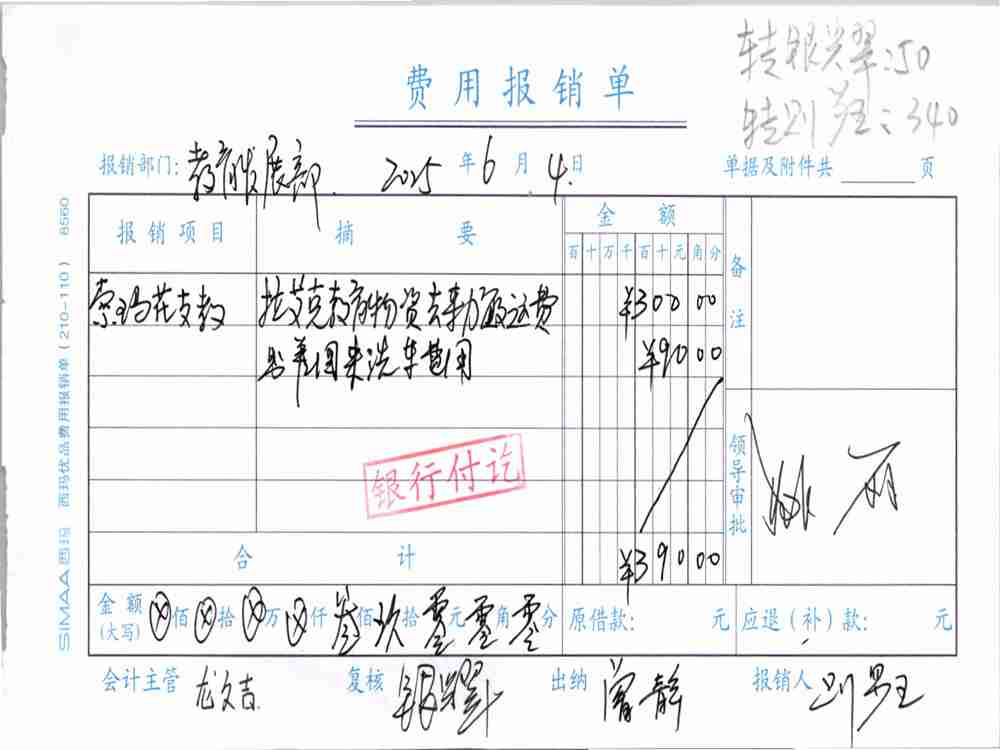 :50
: 340
费用报销单
报销部门: 教育发展部 2025年6月4日 单据及附件共 页
报销项目 摘要 金额 备注
百十万千百十元角分
索玛花支教 拉艾克教育物资去勒 搬运费 ¥300 00
¥90 00
银行付讫
领导审批
合计 ¥390 00
金额(大写) ⊗佰⊗拾⊗万⊗仟叁佰玖拾零元零角零分 原借款: 元 应退(补)款: 元
会计主管 龙文吉 复核 出纳 曾静 报销人
SIMAA西玛 西玛优品费用报销单(210-110) 8560